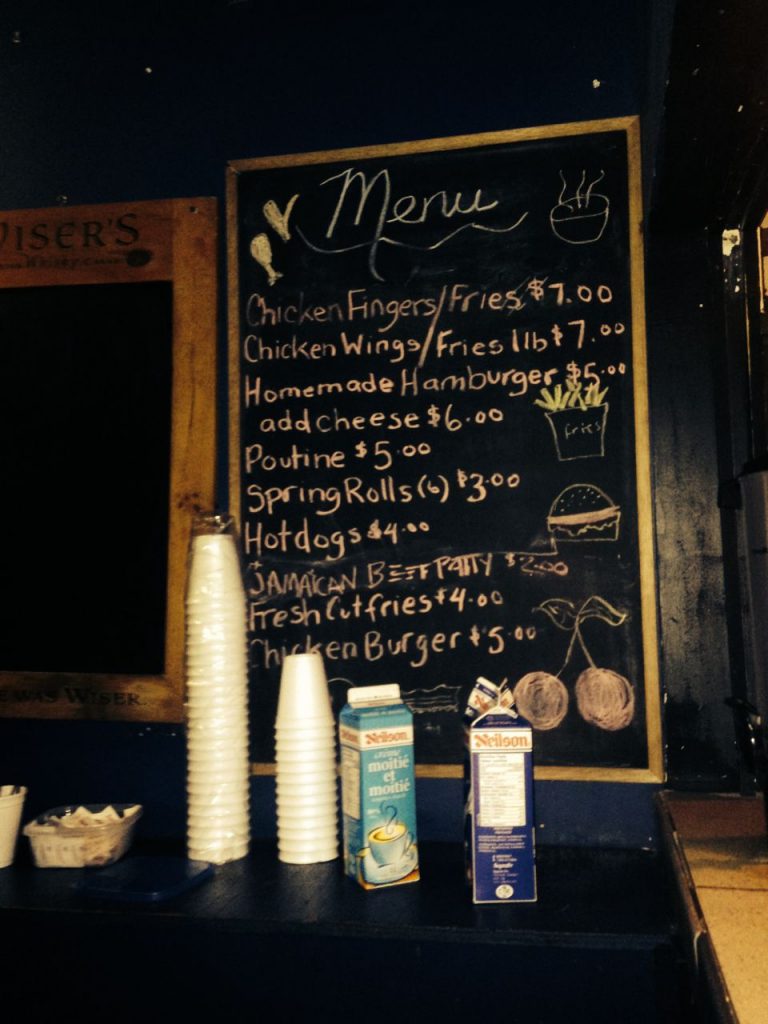 WISER'S
Menu
Chicken Fingers/Fries $7.00
Chicken Wings/Fries 1lb $7.00
Homemade Hamburger $5.00
add cheese $6.00
fries
Poutine $5.00
Spring Rolls (6) $3.00
Hotdogs $4.00
JAMAICAN BEEF PATTY $2.00
Fresh Cut fries $4.00
Chicken Burger $5.00
WAS WISER.
Neilson
crème
moitié
et
moitié
Neilson